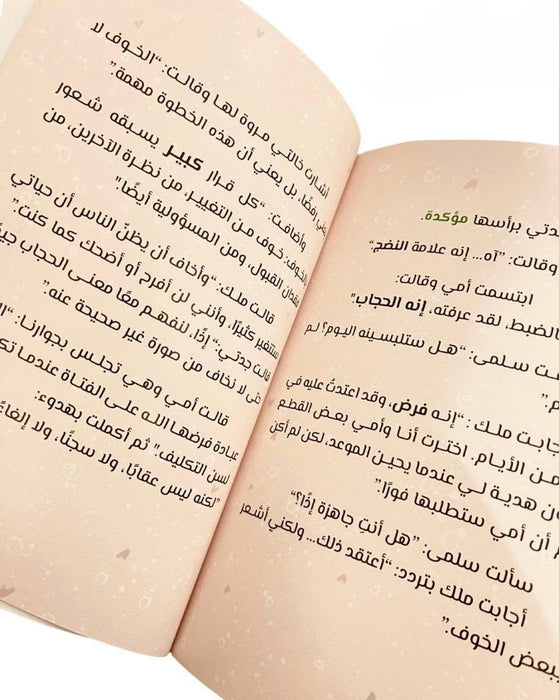 ـدتي برأسها مؤكدة.
وقالت: "آه... إنه علامة النضج"
ابتسمت أمي وقالت:
بالضبط، لقد عرفته، إنه الحجاب"
ـت سلمى: "هل ستلبسينه اليوم؟ لم
ـم"
ـجابت ملك: "إنه فرض، وقد اعتدتُ عليه في
ـن الأيام. اخترت أنا وأمي بعض القطع
ـون هدية لي عندما يحين الموعد، لكن لم أكن
ـم أن أمي ستطلبها فورًا."
سألت سلمى: "هل أنتِ جاهزة إذًا؟"
أجابت ملك بتردد: "أعتقد ذلك... ولكني أشعر
ببعض الخوف."
أشارت خالتي مروة لها وقالت: "الخوف لا
يعني رفضًا، بل يعني أن هذه الخطوة مهمة."
وأضافت: "كل قرار كبير يسبقه شعور
بالخوف: خوف من التغيير، من نظرة الآخرين، من
فقدان القبول، ومن المسؤولية أيضًا."
قالت ملك: "وأخاف أن يظنّ الناس أن حياتي
ستتغير كثيرًا، وأنني لن أفرح أو أضحك كما كنت."
قالت جدتي: "إذًا، لنفهم معًا معنى الحجاب جيدًا
حتى لا نخاف من صورة غير صحيحة عنه."
قالت أمي وهي تجلس بجوارنا:
عبادة فرضها الله على الفتاة عندما
لسن التكليف." ثم أكملت بهدوء:
"لكنه ليس عقابًا، ولا سجنًا، ولا إلغاءً